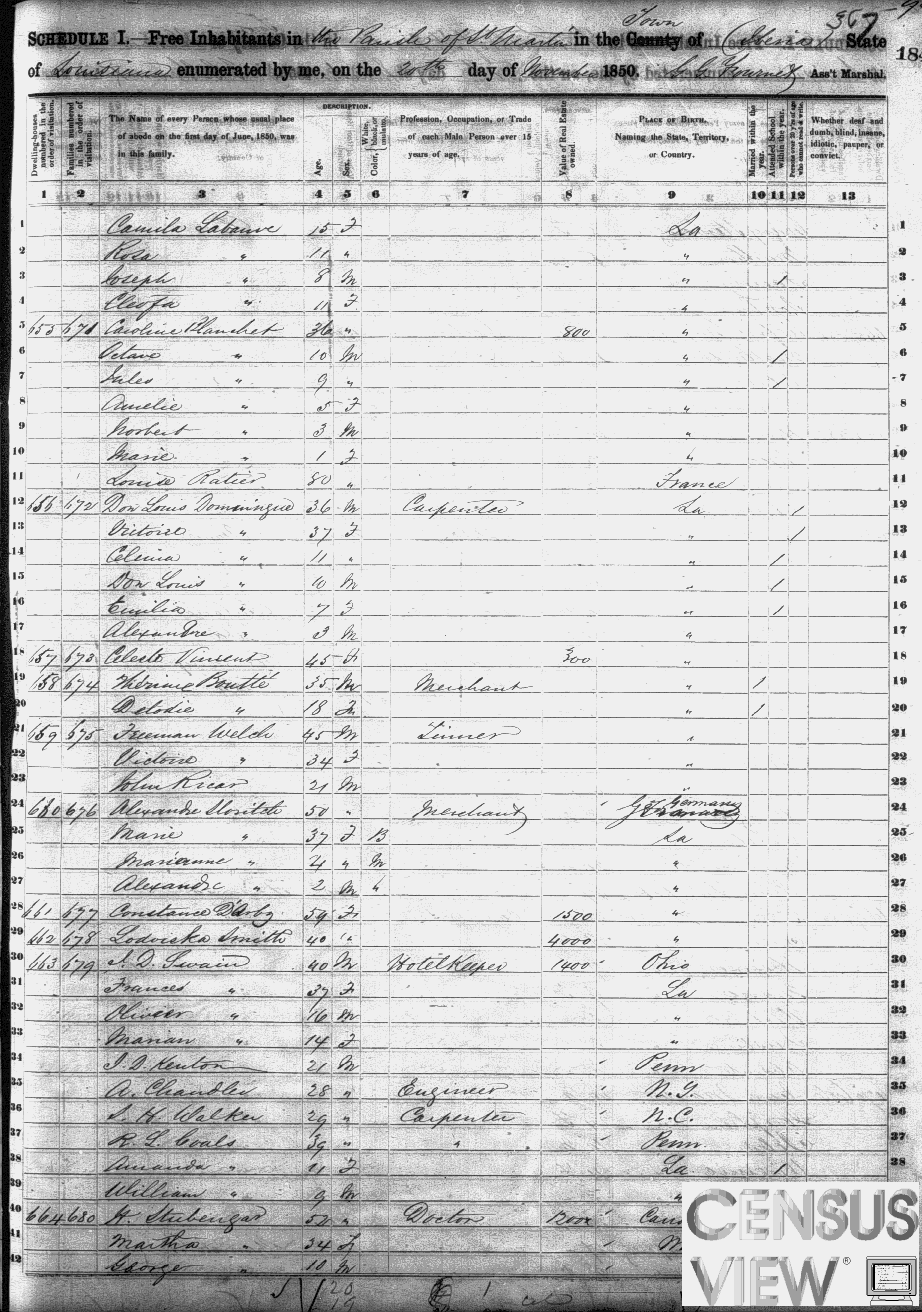 Town 367
SCHEDULE I.—Free Inhabitants in the Parish of St Martin in the County of State
of Louisiana enumerated by me, on the 20th day of November 1850. Ass't Marshal.
184
DESCRIPTION.
Dwelling-houses numbered in the order of visitation.
Families numbered in the order of visitation.
The Name of every Person whose usual place of abode on the first day of June, 1850, was in this family.
Age.
Sex.
Color, White, black, or mulatto.
Profession, Occupation, or Trade of each Male Person over 15 years of age.
Value of Real Estate owned.
PLACE OF BIRTH. Naming the State, Territory, or Country.
Married within the year.
Attended School within the year.
Persons over 20 y'rs of age who cannot read & write.
Whether deaf and dumb, blind, insane, idiotic, pauper, or convict.
1 2 3 4 5 6 7 9 10 11 12 13
1 Camila Labauve 15 F La 1
2 Rosa " 11 " " 2
3 Joseph " 8 M " 1 3
4 Cleofa " 11 F " 4
5 655 671 Caroline Blanchet 36 " 800 " 5
6 Octave " 10 M " 1 6
7 Jules " 9 " " 1 7
8 Amelie " 5 F " 8
9 Norbert " 3 M " 9
10 Marie " 1 F " 10
11 Louise Ratier 80 " France 11
12 656 672 Don Louis Domingue 36 M Carpenter La 1 12
13 Victoire " 37 F " 1 13
14 Celima " 11 " " 1 14
15 Don Louis " 10 M " 1 15
16 Emilia " 7 F " 1 16
17 Alexandre " 3 M " 17
18 657 673 Celeste Vincent 45 F 300 " 18
19 658 674 Boutté 35 M Merchant " 1 19
20 Delodie " 18 F " 1 20
21 659 675 Freeman Welch 45 M Tinner " 21
22 Victoire " 34 F " 22
23 John Ricar 21 M " 23
24 660 676 Alexandre 50 " Merchant Germany 24
25 Marie " 37 F B La 25
26 Marianne " 4 " M " 26
27 Alexandre " 2 M " " 27
28 661 677 Constance D'Arby 59 F 1500 " 28
29 662 678 Lodviska Smith 40 " 4000 " 29
30 663 679 J. D. Swain 40 M Hotel Keeper 1400 Ohio 30
31 Frances " 37 F La 31
32 Olivier " 16 M " 32
33 Marian " 14 F " 33
34 J. D. Kenton 21 M Penn 34
35 A. Chandler 28 " Engineer N.Y. 35
36 S. H. Walker 29 " Carpenter N.C. 36
37 R. L. Coals 39 " " Penn 37
38 Amanda " 11 F La 1 38
39 William " 9 M "
40 664 680 H. Stubenger " Doctor
41 Martha " 34 F
42 George " 10 M
CENSUS
VIEW®